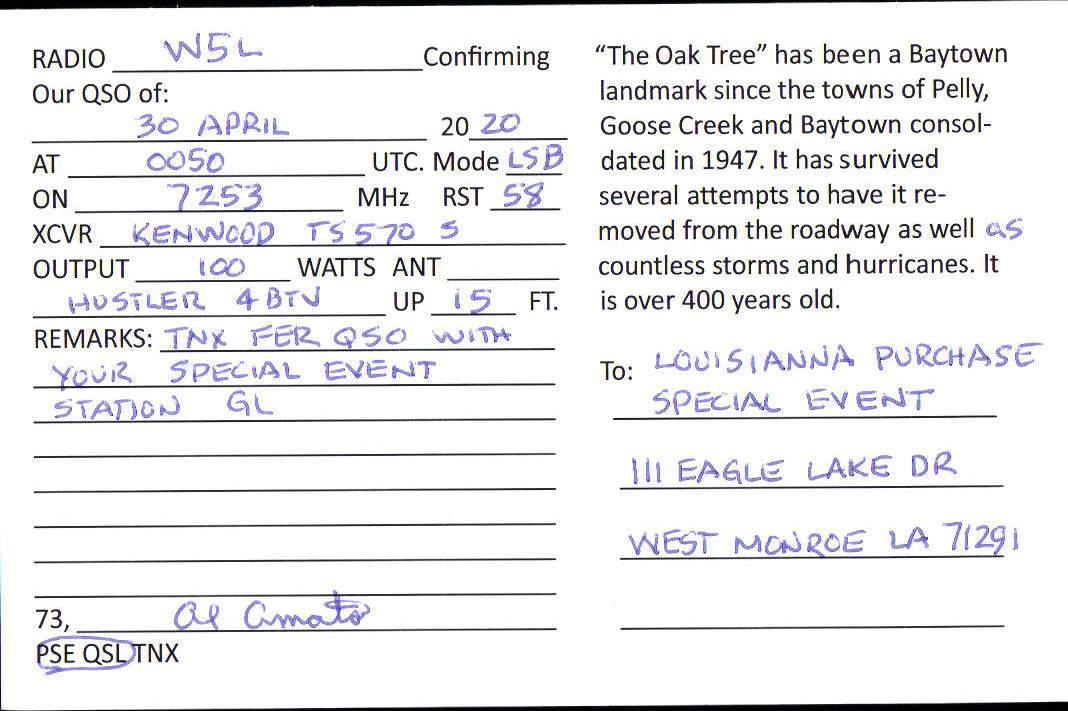 RADIO W5L Confirming
Our QSO of:
30 APRIL 20 20
AT 0050 UTC. Mode LSB
ON 7253 MHz RST 58
XCVR KENWOOD TS570 S
OUTPUT 100 WATTS ANT
HUSTLER 4BTV UP 15 FT.
REMARKS: TNX FER QSO WITH
YOUR SPECIAL EVENT
STATION GL
73, Al Amato
PSE QSL TNX
“The Oak Tree” has been a Baytown
landmark since the towns of Pelly,
Goose Creek and Baytown consol-
dated in 1947. It has survived
several attempts to have it re-
moved from the roadway as well as
countless storms and hurricanes. It
is over 400 years old.
To: LOUISIANNA PURCHASE
SPECIAL EVENT
111 EAGLE LAKE DR
WEST MONROE LA 71291